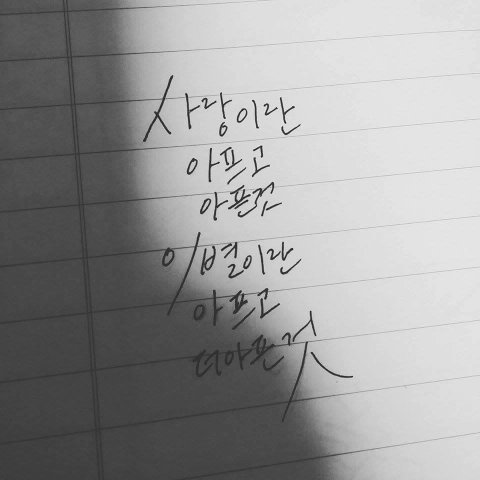 사랑이란
아프고
아픈것
이별이란
아프고
더아픈것